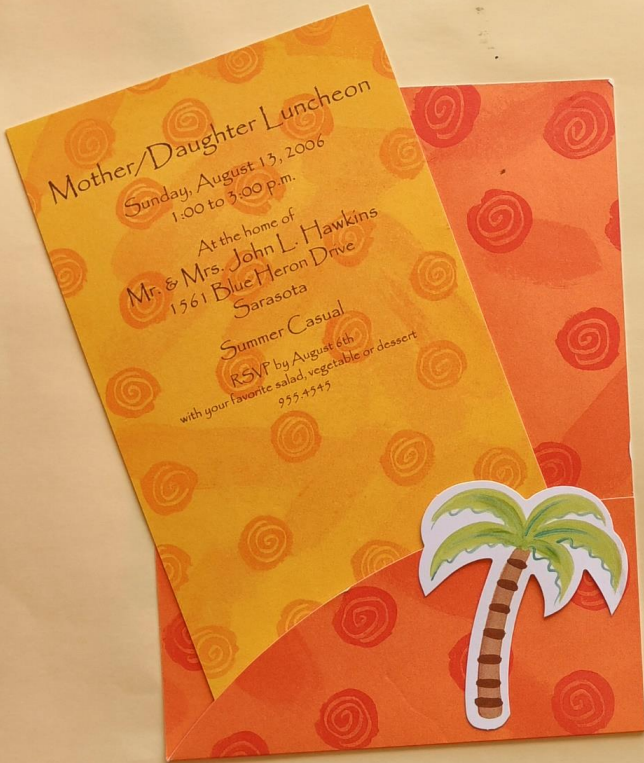 Mother/Daughter Luncheon
Sunday, August 13, 2006
1:00 to 3:00 p.m.
At the home of
Mr. & Mrs. John L. Hawkins
1561 Blue Heron Drive
Sarasota
Summer Casual
RSVP by August 6th
with your favorite salad, vegetable or dessert
955.4545